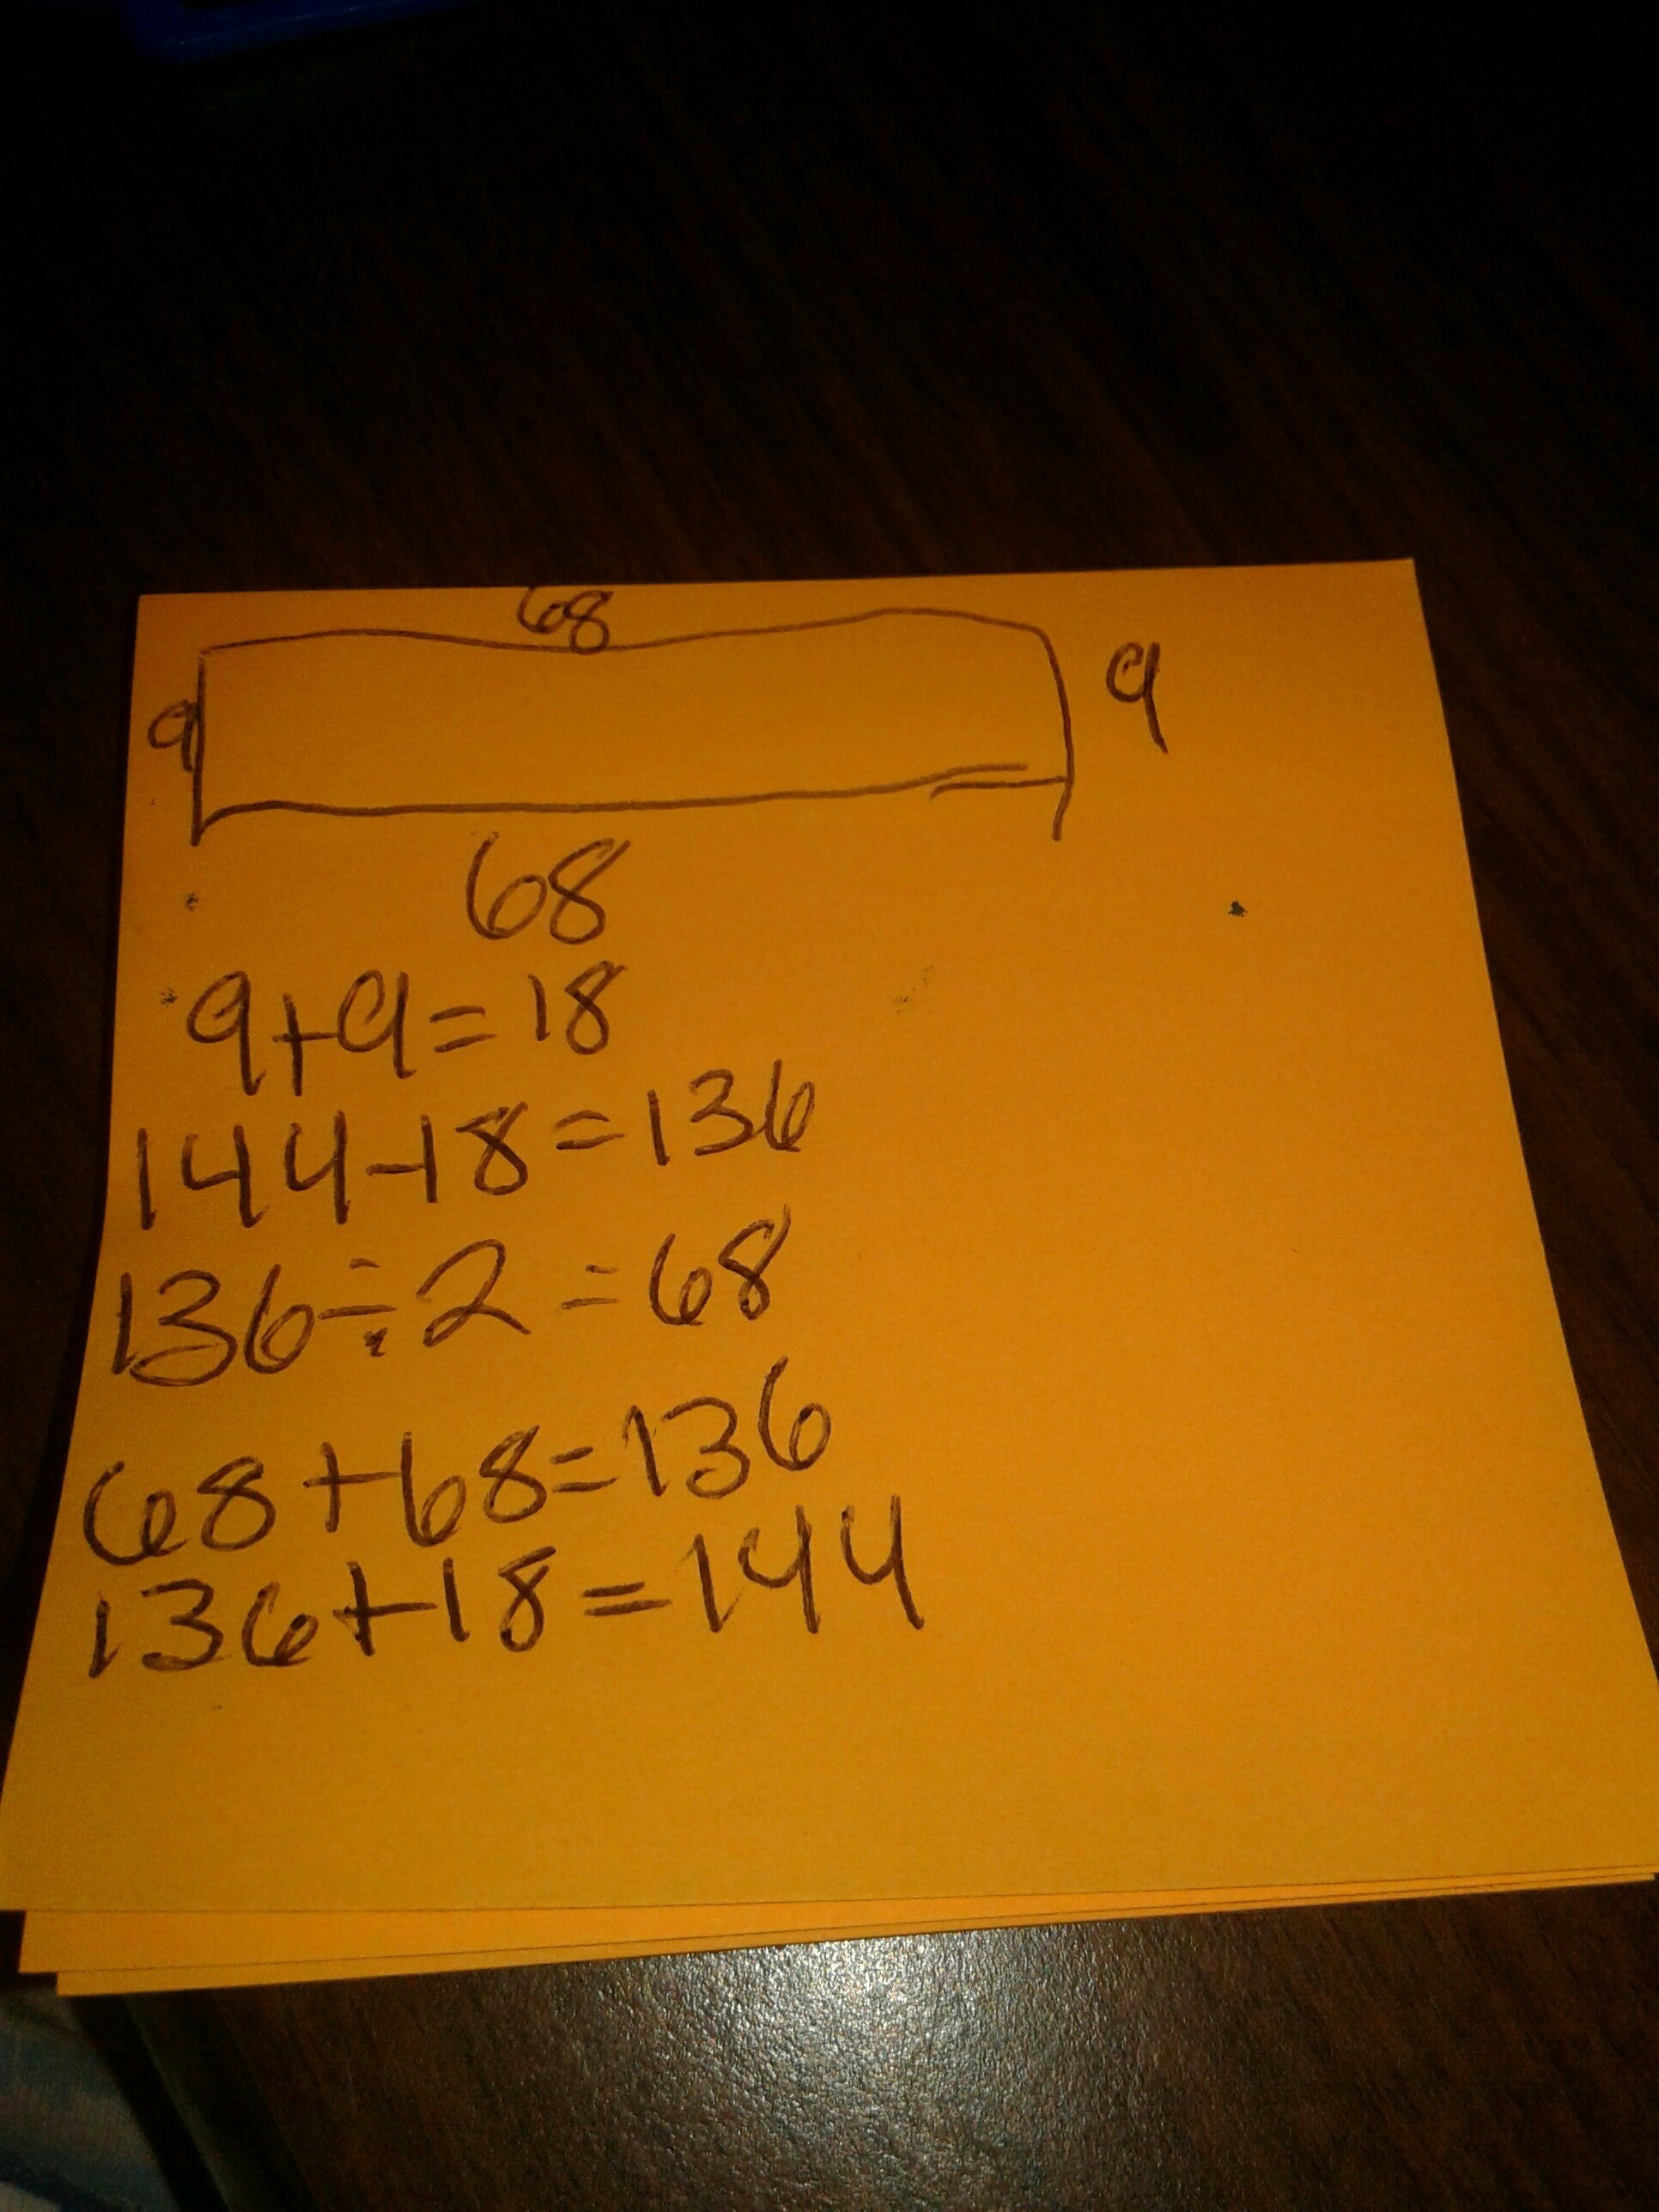 68
9 9
68
9+9=18
144-18=136
136÷2=68
68+68=136
136+18=144